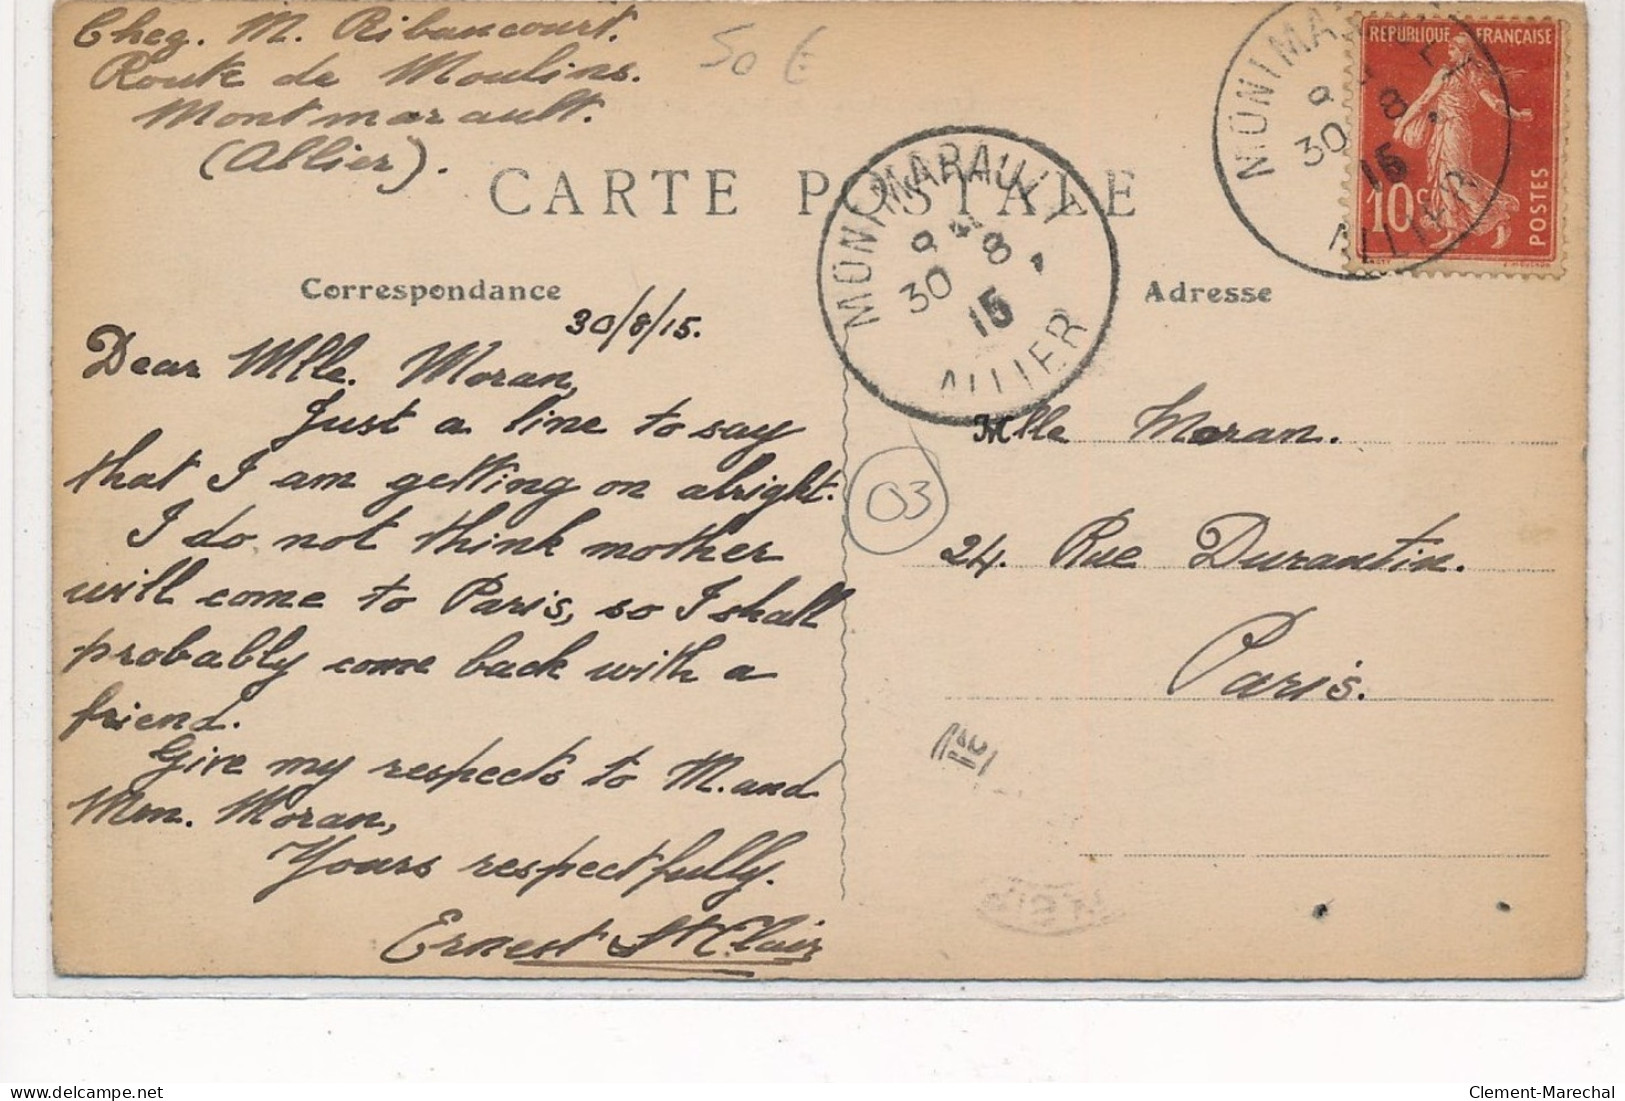 Cheg. M. Ribancourt.
Route de Moulins.
Montmarault.
(Allier).
50 €
CARTE POSTALE
MONTMARAULT
30 8
15
ALLIER
MONTMARAULT
30 8
15
ALLIER
REPUBLIQUE FRANÇAISE
10c
POSTES
Correspondance
Adresse
30/8/15.
Dear Mlle. Moran,
Just a line to say
that I am getting on alright.
I do not think mother
will come to Paris, so I shall
probably come back with a
friend.
Give my respects to M. and
Mm. Moran,
Yours respectfully.
Ernest St Clair
Mlle Moran.
03
24. Rue Durantin.
Paris.
delcampe.net
Clement-Marechal